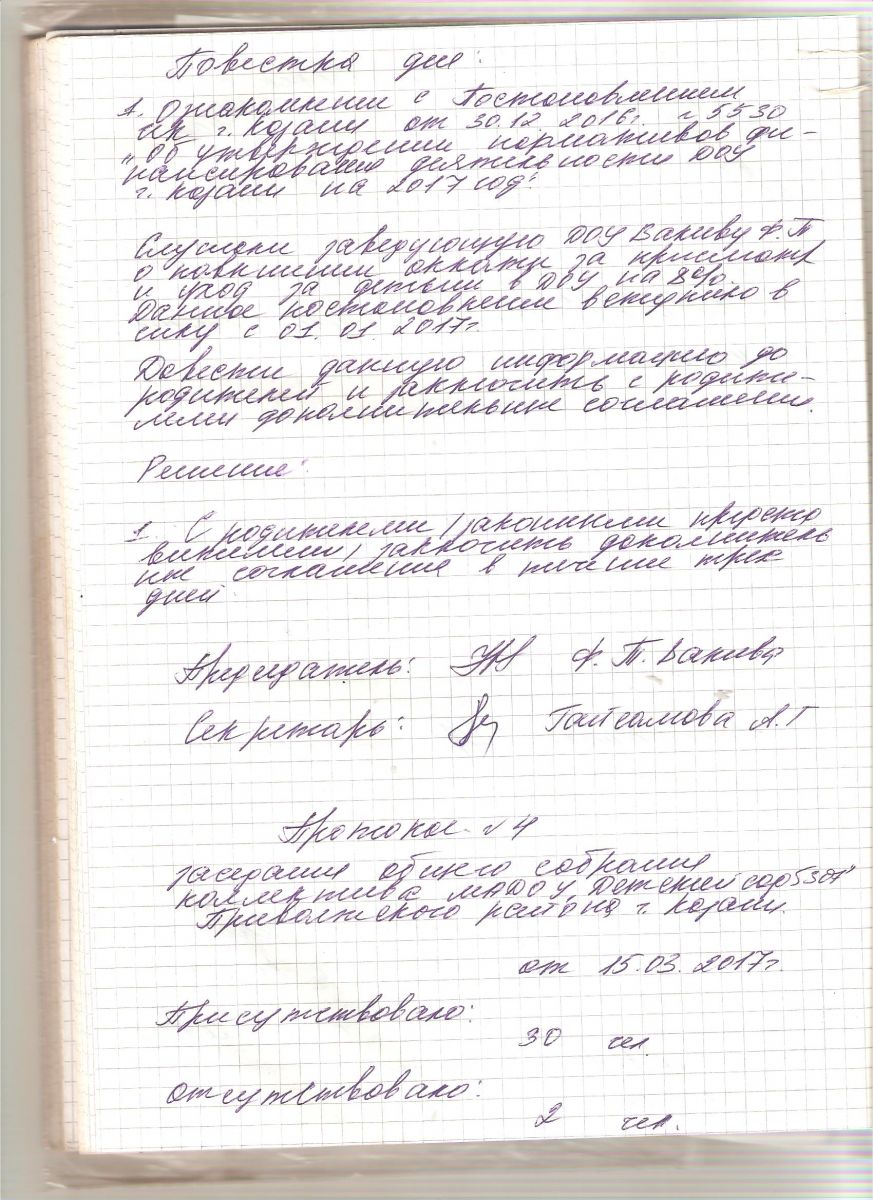 Повестка дня:
1. Ознакомление с Постановлением
ИК г. Казани от 30.12 2016г. № 5530
„Об утверждении нормативов фи-
нансирования деятельности ДОУ
г. Казани на 2017 год".
Слушали заведующую ДОУ Ф.П
о повышении оплаты за присмотр
и уход за детьми в ДОУ на 8%.
Данное постановление вступило в
силу с 01.01.2017г.
Довести данную информацию до
родителей и заключить с родите-
лями дополнительные соглашения.
Решение:
1. С родителями /законными предста
вителями/ заключить дополнитель
ные соглашения в течение трех
дней
Председатель: Ф.П.
Секретарь: А.Г
Протокол №4
заседания общего собрания
коллектива МАДОУ „Детский сад
Приволжского района г. Казани.
от 15.03.2017г.
Присутствовало:
30 чел.
отсутствовало:
2 чел.